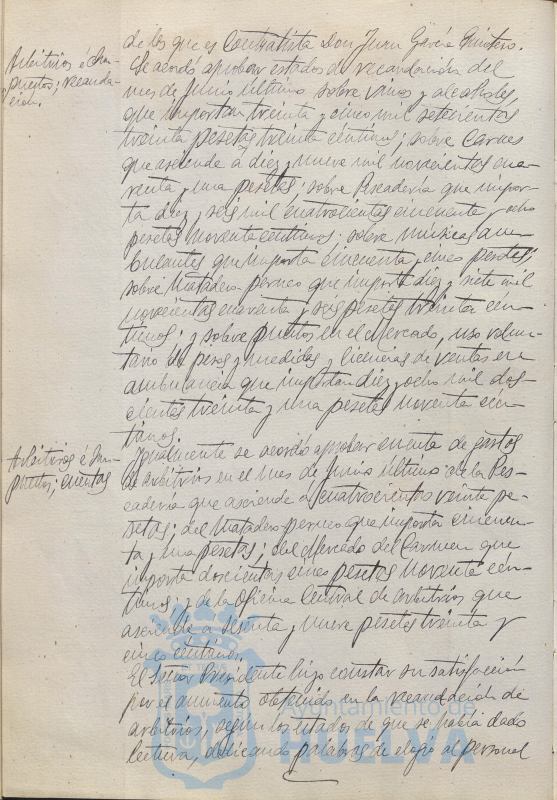 de los que es Contratista Don Juan García Quintero.
Arbitrios é Im-
puestos; recauda-
ción.
Se acordó aprobar estados de recaudación del
mes de Junio último sobre vinos y alcoholes,
que importan treinta y cinco mil setecientas
treinta pesetas treinta céntimos; sobre Carnes
que asciende á diez y nueve mil novecientas cua-
renta y una pesetas; sobre Pescadería que impor-
ta diez y seis mil cuatrocientas cincuenta y ocho
pesetas noventa céntimos; sobre músicas am-
bulantes que importa cincuenta y cinco pesetas;
sobre Matadero perneo que importa diez y siete mil
novecientas cuarenta y seis pesetas treinta cén-
timos; y sobre puestos en el Mercado, uso volun-
tario de pesas y medidas y licencias de ventas en
ambulancia que importan diez y ocho mil dos-
cientas treinta y una pesetas noventa cén-
timos.
Arbitrios é Im-
puestos; cuentas
Igualmente se acordó aprobar cuenta de gastos
de arbitrios en el mes de Junio último: de la Pes-
cadería que asciende a cuatrocientas veinte pe-
setas; del Matadero perneo que importa cincuen-
ta y una pesetas; del Mercado del Carmen que
importa doscientas cinco pesetas noventa cén-
timos; y de la Oficina Central de arbitrios que
asciende a sesenta y nueve pesetas treinta y
cinco céntimos.
El Señor Presidente hizo constar su satisfacción
por el aumento obtenido en la recaudación de
arbitrios, según los estados de que se había dado
lectura, dedicando palabras de elogio al personal
Ayuntamiento de
HUELVA